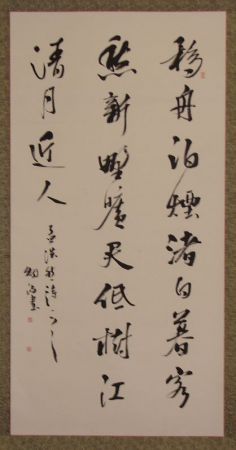 移舟泊煙渚日暮客
愁新野曠天低樹江
清月近人
孟浩然詩